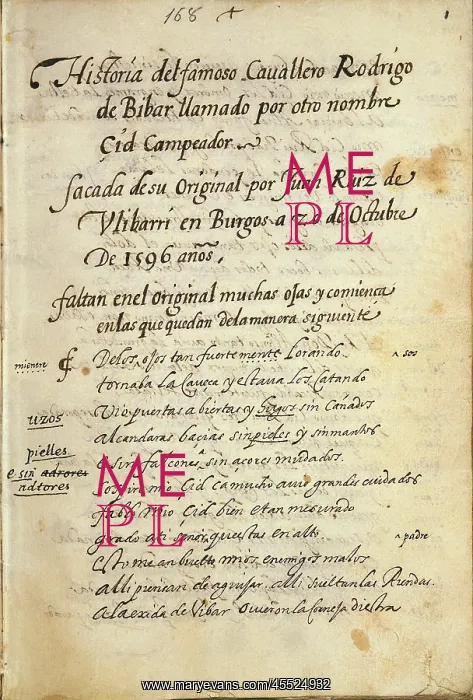 168
1
Historia del famoso Cavallero Rodrigo
de Bibar llamado por otro nombre
Çid Campeador
sacada de su Original por Juan Ruiz de
Vlibarri en Burgos a 20 de Octubre
De 1596 años.
faltan en el original muchas ojas y comiença
en las que quedan de la manera siguiente
mientre
Delos oios tan fuerte mente Lorando
sos
tornaba La Caveça y estava Los Catando
Vio puertas abiertas y
sin Cañados
uzos
alcandaras bacias sin pieles y sin mantos
pielles
sin falcones sin acores mudados.
e sin adrores
adtores
mio Cid ca mucho avie grandes cuidados
fablo mio Cid bien e tan mesurado
grado a ti señor que estas en alto
padre
Esto me an buelto mios enemigos malos
alli piensan de aguijar alli sueltan las Riendas.
A la exida de Vibar ovieron la Corneja diestra
ME
PL
ME
PL
www.maryevans.com/45524932